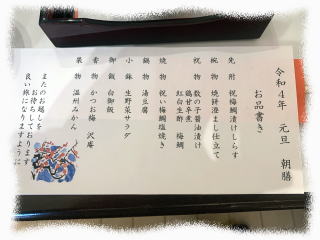 令和4年 元旦 朝膳
お品書き
先附 祝梅鯛漬けしらす
椀物 焼餅澄まし仕立て
祝物 数の子醤油漬け
鶏甘辛煮
紅白生酢 梅鯛
焼物 祝い梅鯛塩焼き
鍋物 湯豆腐
小鉢 生野菜サラダ
御飯 白御飯
香物 かつお梅 沢庵
果物 温州みかん
またのお越しを
お待ちしております
良い旅になりますように